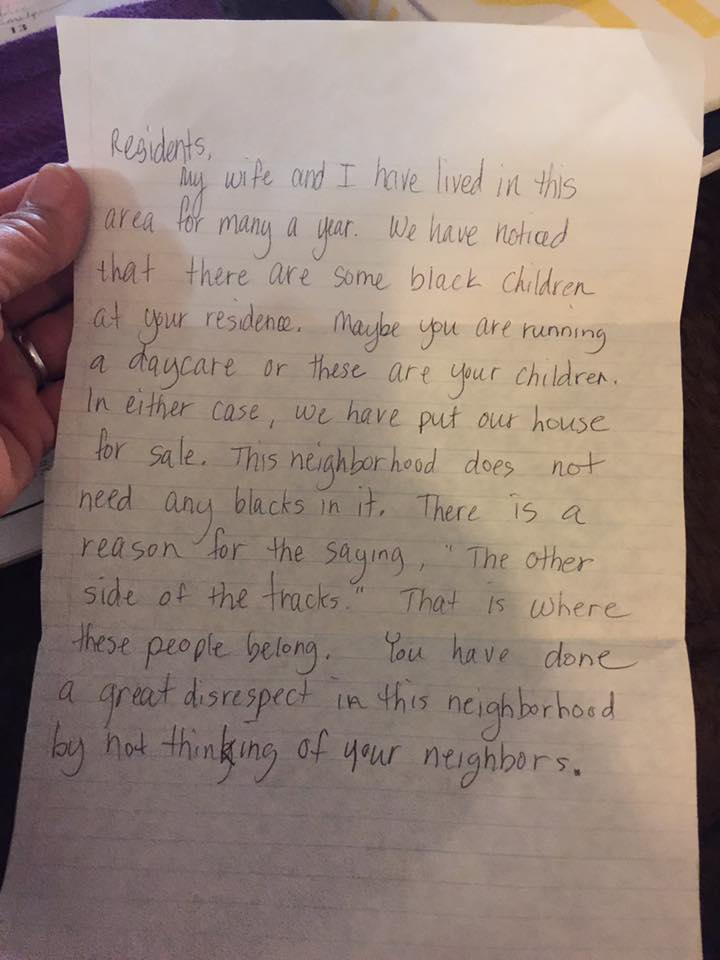 13
Residents,
My wife and I have lived in this
area for many a year. We have noticed
that there are some black children
at your residence. Maybe you are running
a daycare or these are your children.
In either case, we have put our house
for sale. This neighborhood does not
need any blacks in it. There is a
reason for the saying, "The other
side of the tracks." That is where
these people belong. You have done
a great disrespect in this neighborhood
by not thinking of your neighbors.